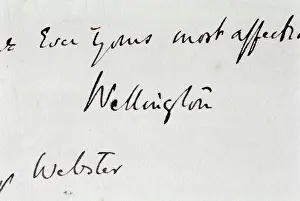 Ever Yours most affectio
Wellington
Webster